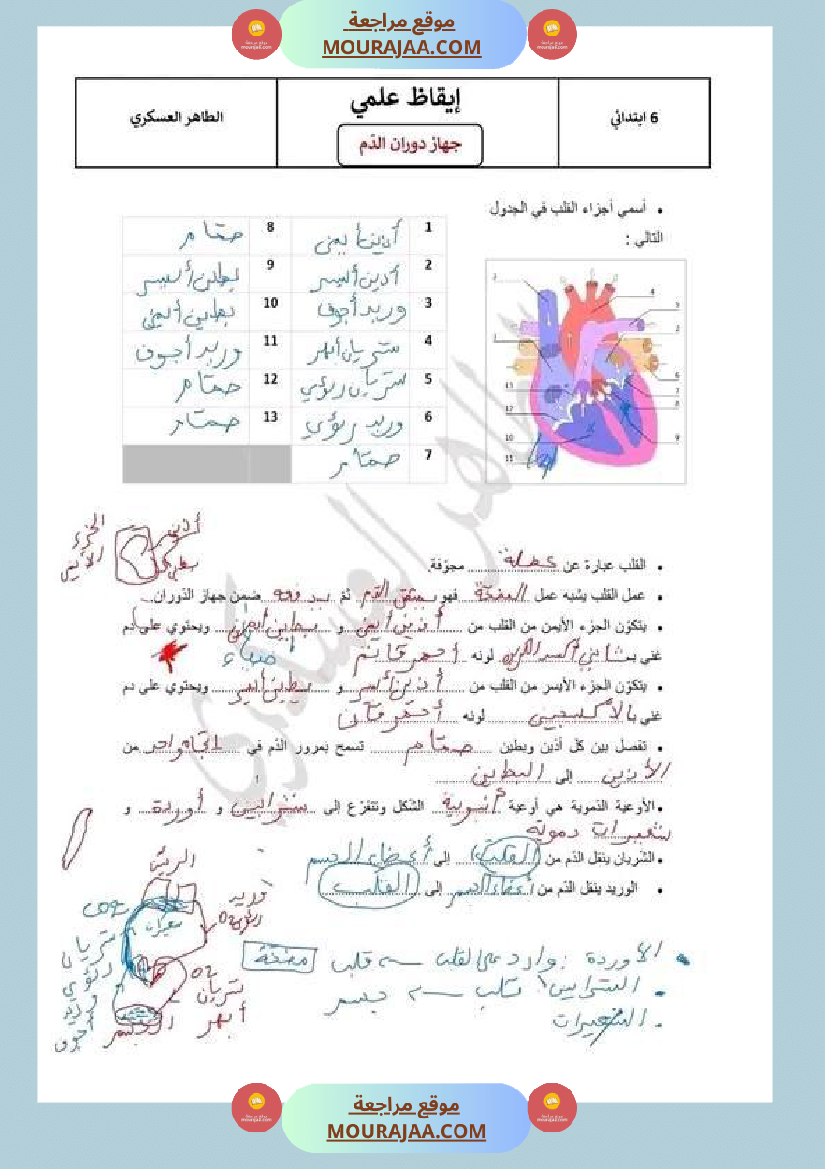 موقع مراجعة
MOURAJAA.COM
6 ابتدائي
إيقاظ علمي
جهاز دوران الدّم
الطاهر العسكري
• أسمي أجزاء القلب في الجدول
التالي :
1 أذين أيمن
8 صمام
2 أذين أيسر
9 بطين أيسر
3 وريد أجوف
10 بطين أيمن
4 شريان أبهر
11 وريد أجوف
5 شريان رئوي
12 صمام
6 وريد رئوي
13 صمام
7 صمام
الجزء الأيمن
أذين
• القلب عبارة عن عضلة مجوّفة.
• عمل القلب يشبه عمل المضخة فهو الدم ثمّ ضمن جهاز الدّوران.
• يتكوّن الجزء الأيمن من القلب من أذين أيمن و بطين أيمن ويحتوي على دم
غني بـ لونه أحمر قاتم
• يتكوّن الجزء الأيسر من القلب من أذين أيسر و بطين أيسر ويحتوي على دم
غني بالأكسجين لونه أحمر قان
• تفصل بين كل أذين وبطين صمام تسمح بمرور الدّم في من
الأذين إلى البطين
• الأوعية الدّموية هي أوعية أنبوبية الشكل وتتفرّع إلى شرايين و أوردة و
شعيرات دموية
• الشّريان ينقل الدّم من القلب إلى أعضاء الجسم
• الوريد ينقل الدّم من أعضاء الجسم إلى القلب
الرئتين
وريد رئوي
CO2
شريان الرئوي
وريد أجوف
شريان أبهر
الجسم
• الأوردة : وارد على القلب قلب مضخة
• الشرايين قلب جسم
• الشعيرات
موقع مراجعة
MOURAJAA.COM